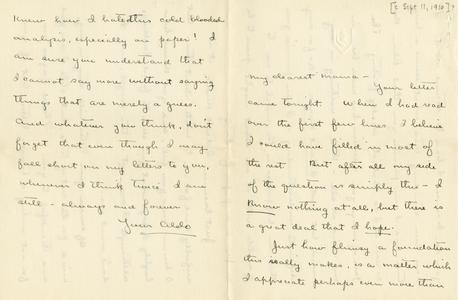 Knew how I hated this cold blooded
analysis, especially on paper! I
am sure you understand that
I cannot say more without saying
things that are merely a guess.
And whatever you think, don't
forget that even though I may
fall short in my letters to you,
whenever I think twice I am
still - always and forever
Your Aldo
[c Sept 11, 1910]?
My dearest Mama -
Your letter
came tonight When I had read
over the first few lines I believe
I could have filled in most of
the rest But after all my side
of the question is simply this - I
Know nothing at all, but there is
a great deal that I hope.
Just how flimsy a foundation
this really makes, is a matter which
I appreciate perhaps even more than